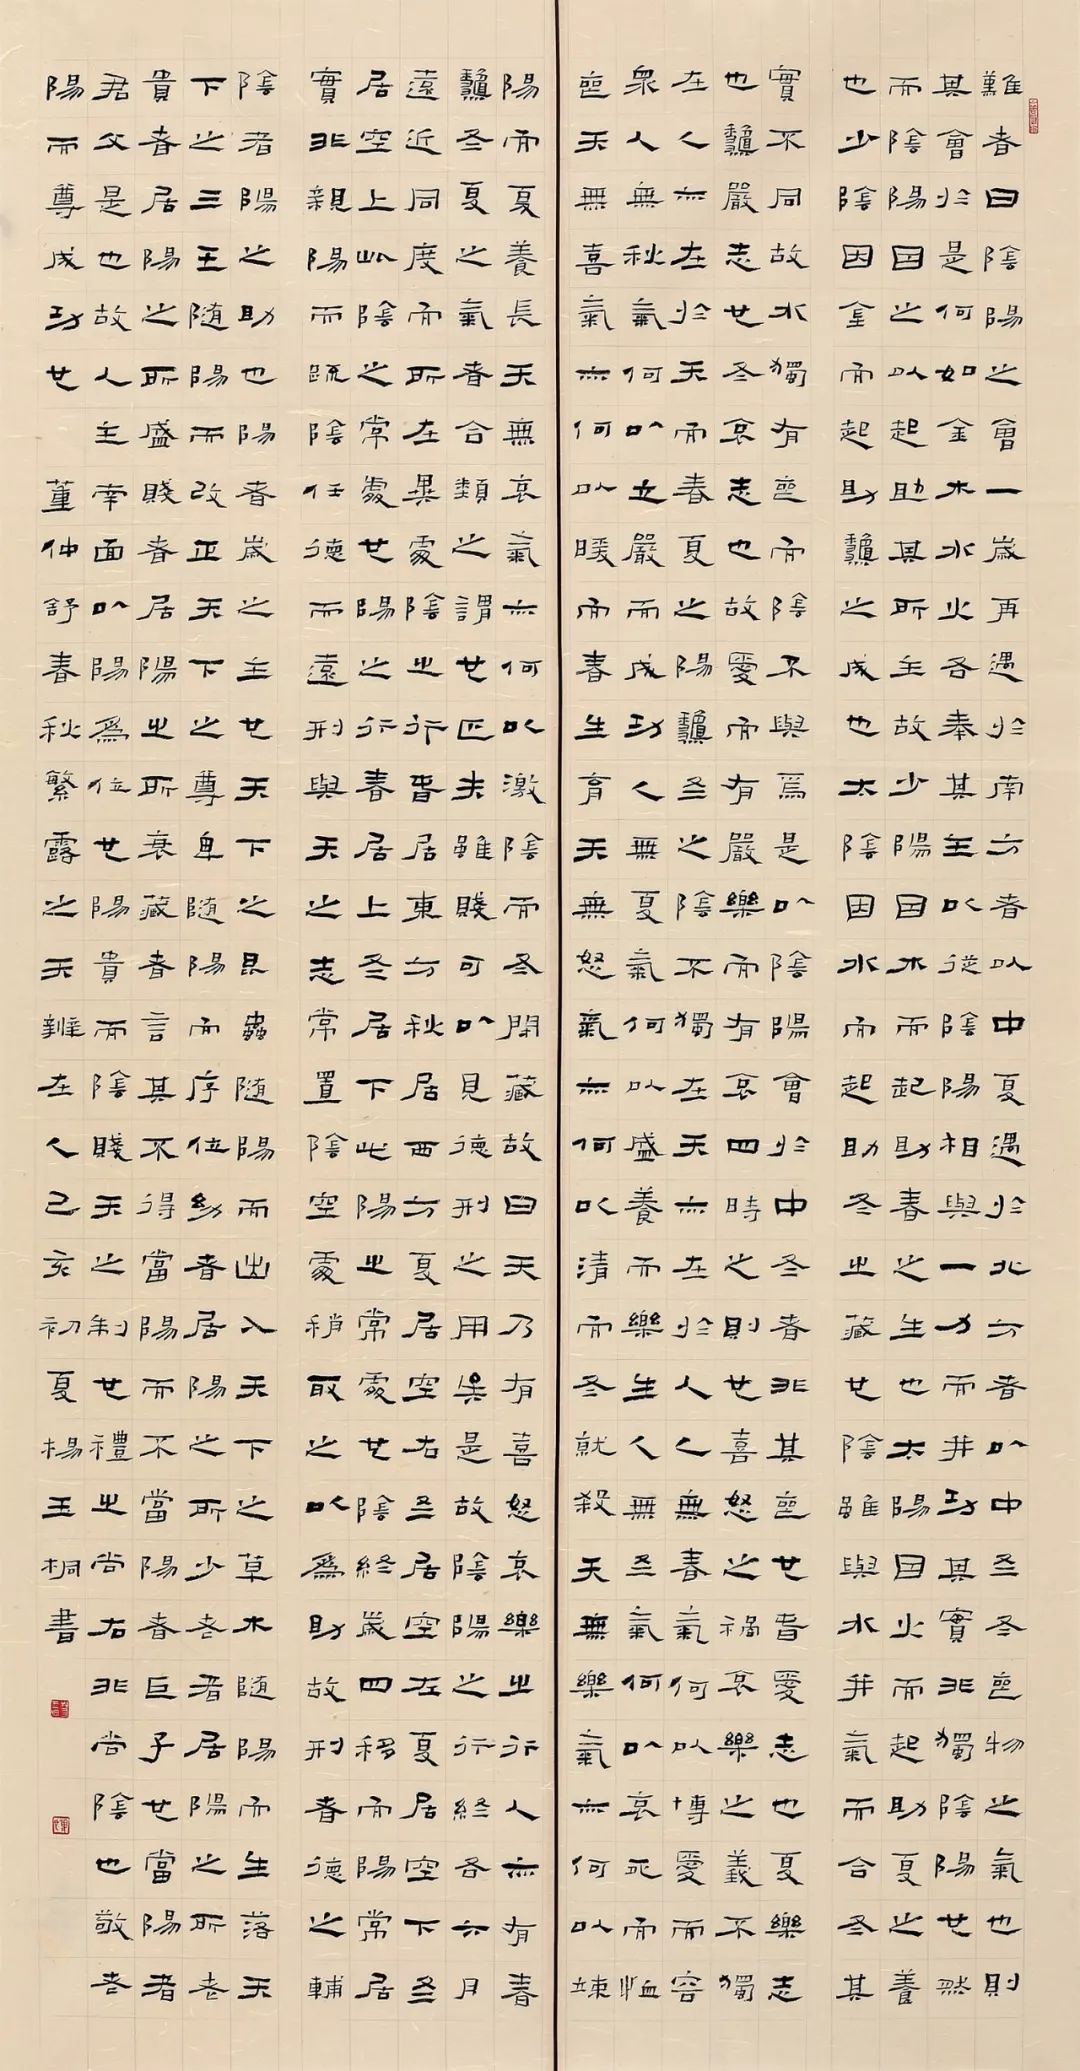 難春曰陰陽之會一歲再遇於南方者以中夏遇於北方者以中冬冬喪物之氣也則
其會於是何如金木水火各奉其主以從陰陽相與一力而并功其實非獨陰陽也然
而陰陽因之以起助其所主故少陽因木而起助春之生也太陽因火而起助夏之養
也少陰因金而起助龝之成也太陰因水而起助冬之藏也陰雖與水并氣而合冬其
實不同故水獨有喪而陰不與焉是以陰陽會於中冬者非其喪也春愛志也夏樂志
也龝嚴志也冬哀志也故愛而有嚴樂而有哀四時之則也喜怒之禍哀樂之義不獨
在人亦在於天而春夏之陽龝冬之陰不獨在天亦在於人人無春氣何以博愛而容
眾人無秋氣何以立嚴而成功人無夏氣何以盛養而樂生人無冬氣何以哀死而恤
喪天無喜氣亦何以暖而春生育天無怒氣亦何以清而冬就殺天無樂氣亦何以竦
陽而夏養長天無哀氣亦何以激陰而冬閉藏故曰天乃有喜怒哀樂之行人亦有春
龝冬夏之氣者合類之謂也匹夫雖賤可以見德刑之用矣是故陰陽之行終各六月
遠近同度而所在異處陰之行春居東方秋居西方夏居空右冬居空左夏居空下冬
居空上此陰之常處也陽之行春居上冬居下此陽之常處也陰終歲四移而陽常居
實非親陽而疏陰任德而遠刑與天之志常置陰空處稍取之以為助故刑者德之輔
陰者陽之助也陽者歲之主也天下之昆蟲隨陽而出入天下之草木隨陽而生落天
下之三王隨陽而改正天下之尊卑隨陽而序位幼者居陽之所少老者居陽之所老
貴者居陽之所盛賤者居陽之所衰藏者言其不得當陽而不當陽者臣子也當陽者
君父是也故人主南面以陽為位也陽貴而陰賤天之制也禮之尚右非尚陰也敬老
陽而尊成功也 董仲舒春秋繁露之天辨在人己亥初夏楊玉桐書